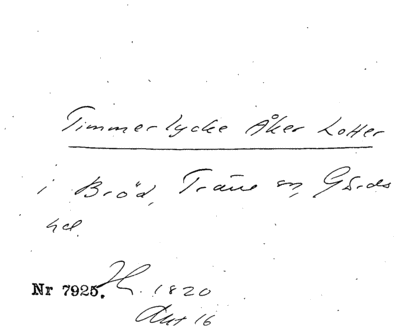 Timmerlycke Åker Lotter
i Bröd, Träne sn, Gärds
hd.
Nr 7925. H. 1820
Akt 16